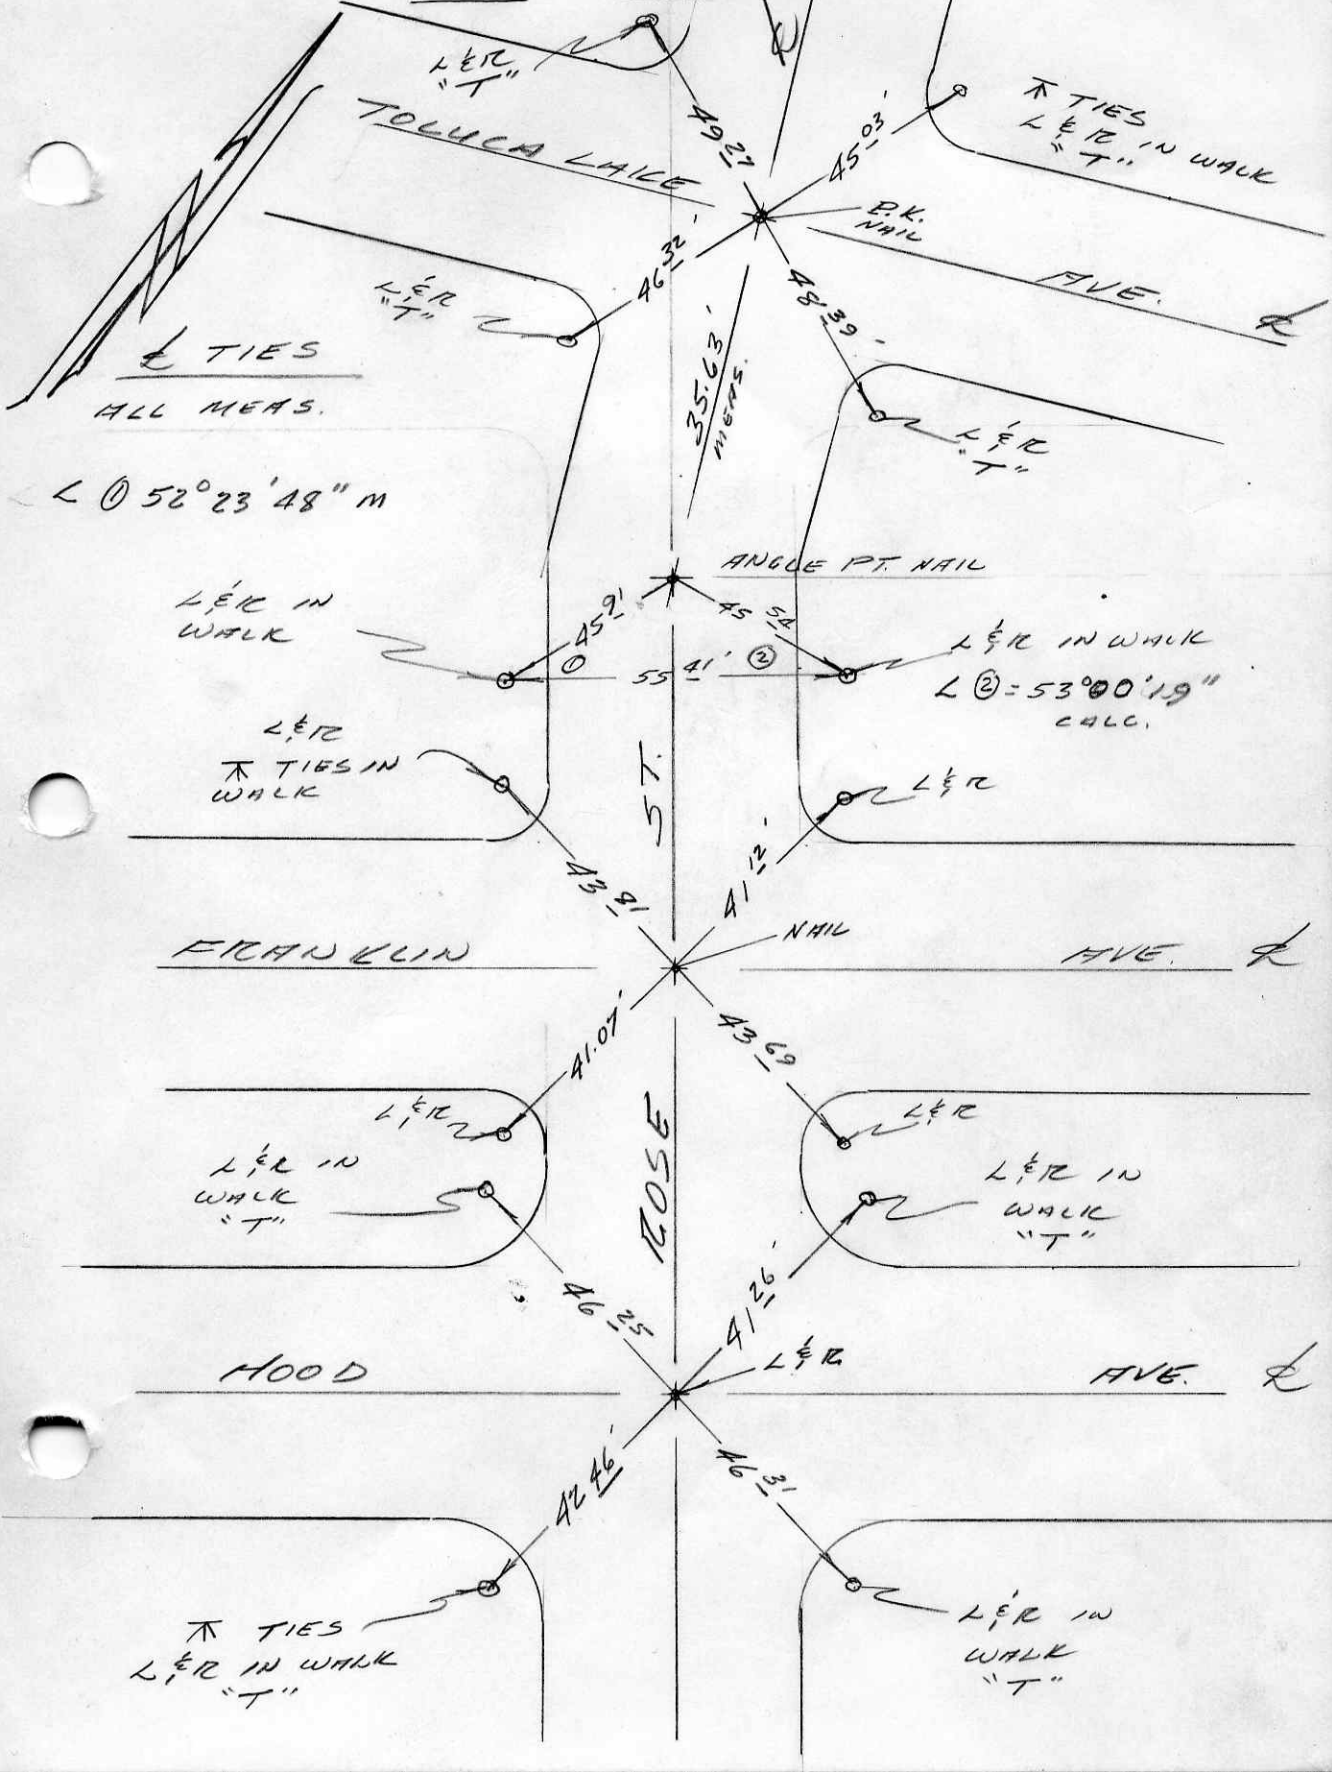 L&R
"T"
℄
TOLUCA LAKE
49 27
45 03'
⊼ TIES
L&R IN WALK
"T"
P.K.
NAIL
46 32'
48 39
AVE. ℄
L&R
"T"
35.63'
MEAS.
℄ TIES
ALL MEAS.
L&R
"T"
∠ ① 52° 23' 48" M
ANGLE PT. NAIL
L&R IN
WALK
45 91
45 54
①
55 41'
②
L&R IN WALK
∠ ② = 53° 00' 19"
CALC.
L&R
⊼ TIES IN
WALK
ST.
L&R
43 81
41 12'
NAIL
FRANKLIN
AVE. ℄
41.07'
43 69
L&R
L&R
L&R IN
WALK
"T"
ROSE
L&R IN
WALK
"T"
46 25
41 26'
L&R
HOOD
AVE. ℄
42 46'
46 31
⊼ TIES
L&R IN WALK
"T"
L&R IN
WALK
"T"